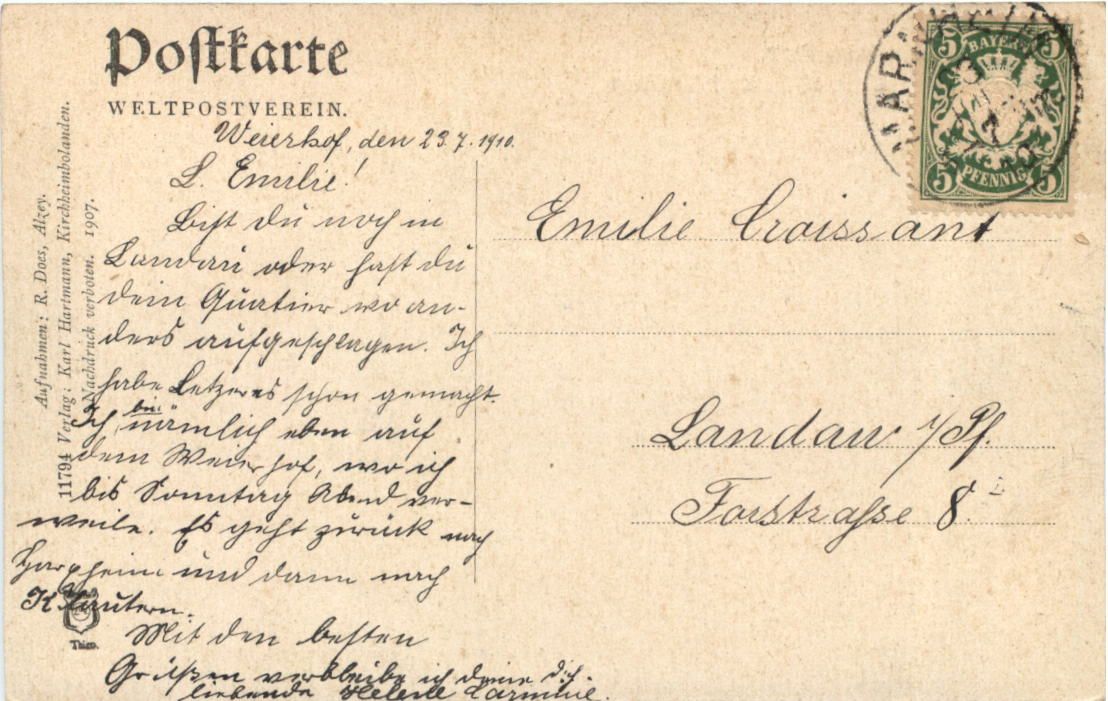 Postkarte
WELTPOSTVEREIN.
Weierhof, den 23.7.1910.
L. Emilie!
Bist du noch in
Landau oder hast du
dein Quartier wo an-
ders aufgeschlagen. Ich
habe Letzeres schon gemacht.
Ich bin nämlich eben auf
dem Weierhof, wo ich
bis Sonntag Abend ver-
weile. Es geht zurück nach
und dann nach
K'lautern.
Mit den besten
Grüßen verbleibe ich deine dich
liebende
Emilie Croissant
Landau i/Pf.
Forstrasse 8.
BAYERN
5 5
5 5
PFENNIG
MARNHEIM
Aufnahmen: R. Does, Alzey.
11794 Verlag: Karl Hartmann, Kirchheimbolanden.
Nachdruck verboten. 1907.